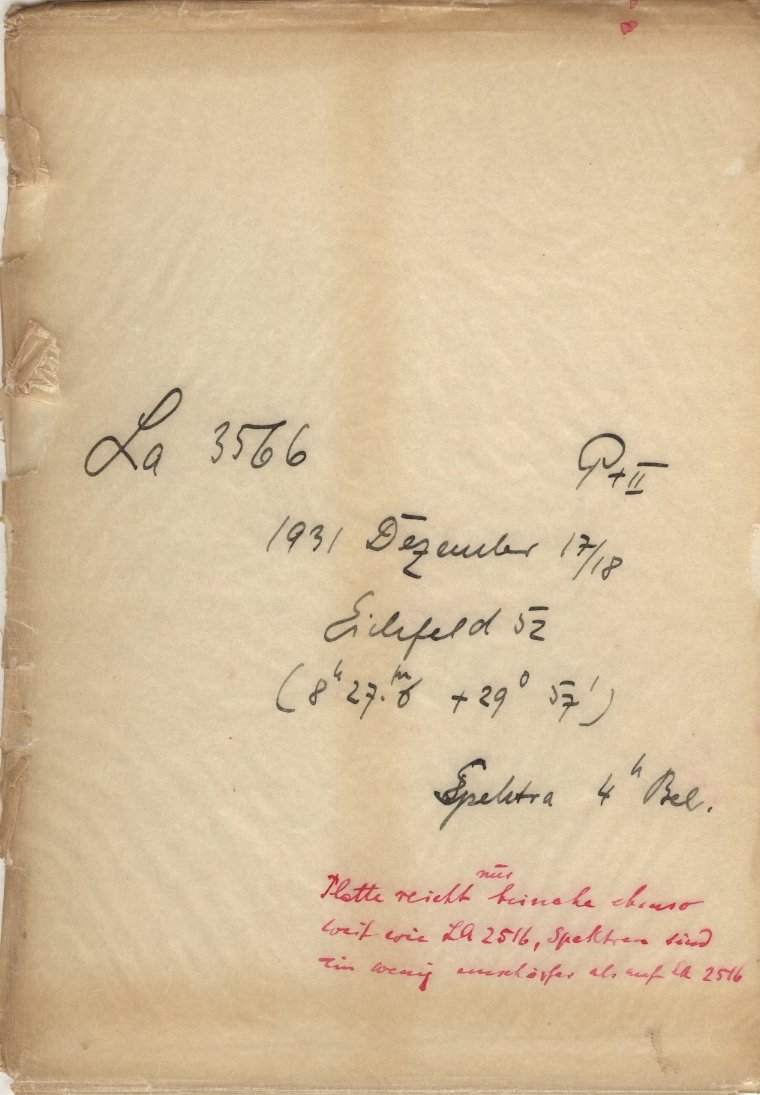 La 3566 P+II
1931 Dezember 17/18
Eichfeld 52
(8ʰ 27.ᵐ6 +29° 57')
Spektra 4ʰ Bel.
nur
Platte reicht beinahe ebenso
weit wie LA 2516, Spektren sind
ein wenig unschärfer als auf LA 2516